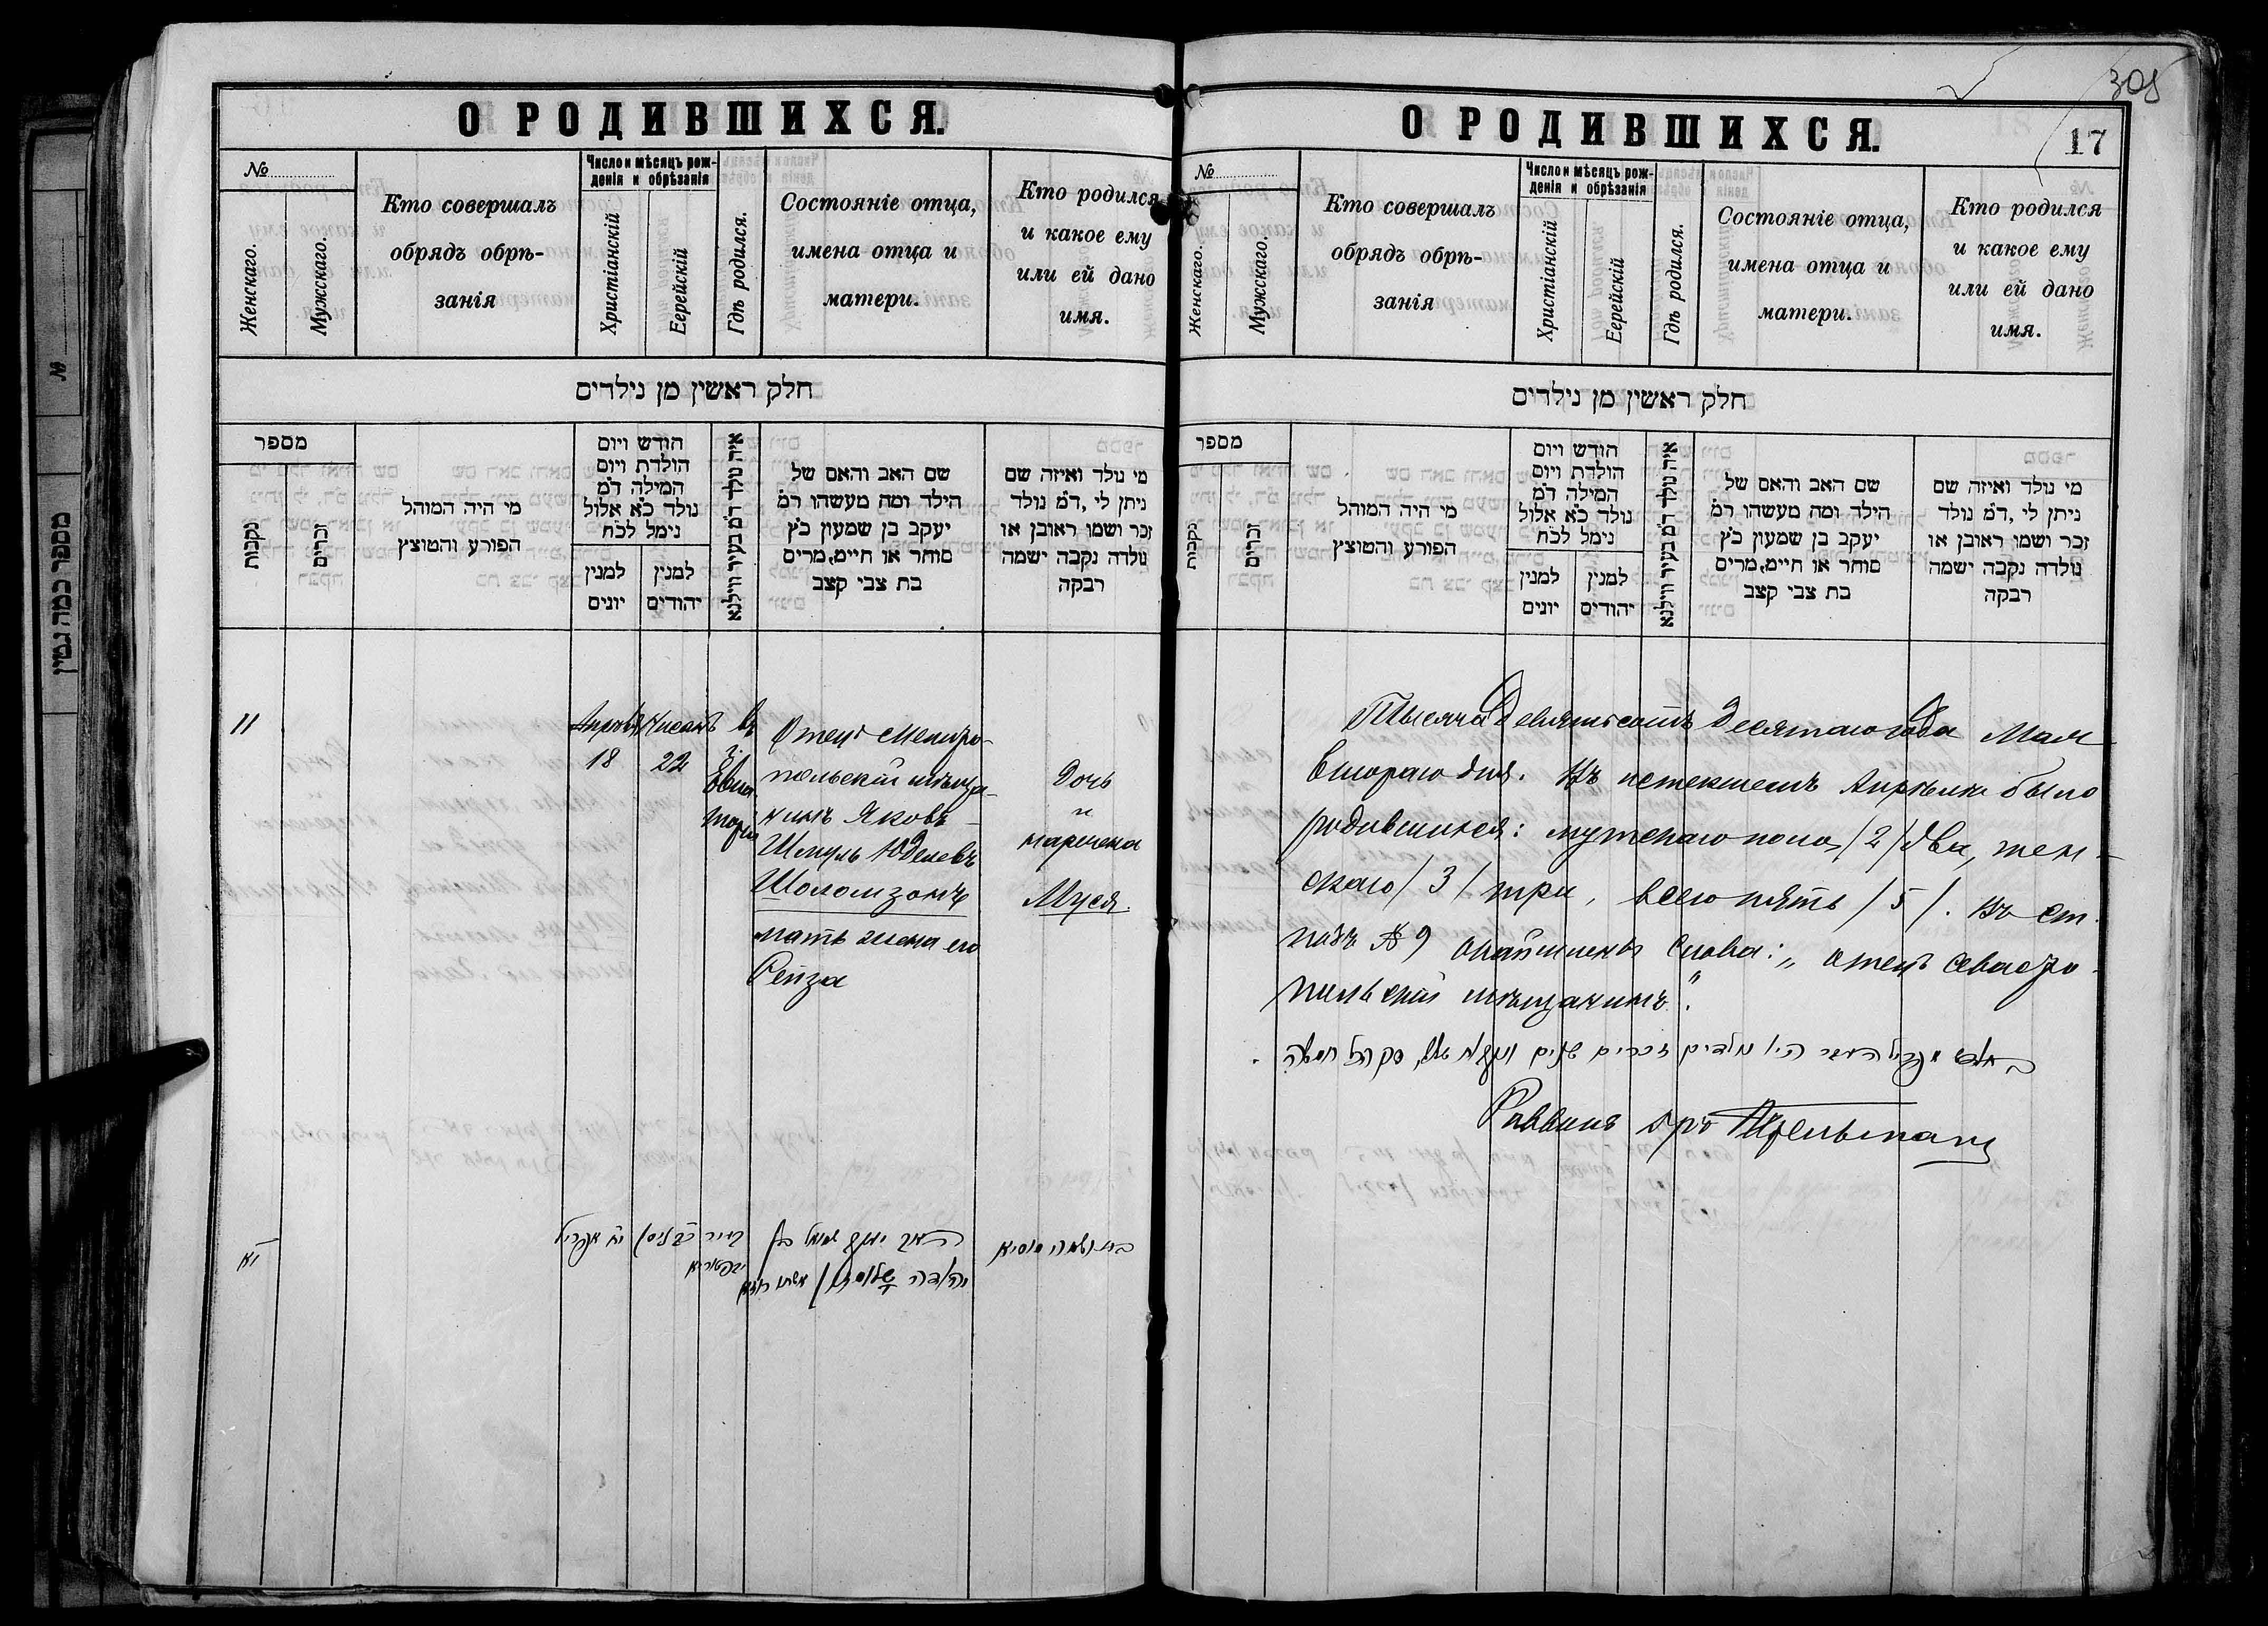 О РОДИВШИХСЯ.
№
Женскаго.
Мужскаго.
Кто совершалъ
обрядъ обрѣ-
занія
Число и мѣсяцъ рож-
денія и обрѣзанія
Христіанскій
Еерейскій
Гдѣ родился.
Состояніе отца,
имена отца и
матери.
Кто родился
и какое ему
или ей дано
имя.
חלק ראשין מן נילדים
מספר
נקבות
זכרים
מי היה המוהל
הפורע והמוצץ
חודש ויום
הולדת ויום
המילה ד״מ
נולד כ״א אלול
נימל לכ״ח
למנין
יונים
למנין
יהודים
איה נולד ד״מ בעיר ווילנא
שם האב והאם של
הילד ומה מעשהו ר״מ
יעקב בן שמעון כ״ץ
סוחר או חיים, מרים
בת צבי קצב
מי נולד ואיזה שם
ניתן לי, ד״מ נולד
זכר ושמו ראובן או
נולדה נקבה ישמה
רבקה
11
Апрѣля
18
Нисанъ
22
въ
г.
Евпа
торіи
Отецъ Мелито-
польскій мѣща-
нинъ Яковъ-
Шмуль Юделевъ
Шоломзонъ
мать жена его
Рейза
Дочь
и
наречена
Муся.
י״א
י״ח אפריל
כ״ב ניסן
בעיר
יבפטוריא
האב יעקב שמואל בן
יהודה שלומזון אשתו רייזא
בת ושמה מוסיא
О РОДИВШИХСЯ.
305
17
№
Женскаго.
Мужскаго.
Кто совершалъ
обрядъ обрѣ-
занія
Число и мѣсяцъ рож-
денія и обрѣзанія
Христіанскій
Еерейскій
Гдѣ родился.
Состояніе отца,
имена отца и
матери.
Кто родился
и какое ему
или ей дано
имя.
חלק ראשין מן נילדים
מספר
נקבות
זכרים
מי היה המוהל
הפורע והמוצץ
חודש ויום
הולדת ויום
המילה ד״מ
נולד כ״א אלול
נימל לכ״ח
למנין
יונים
למנין
יהודים
איה נולד ד״מ בעיר ווילנא
שם האב והאם של
הילד ומה מעשהו ר״מ
יעקב בן שמעון כ״ץ
סוחר או חיים, מרים
בת צבי קצב
מי נולד ואיזה שם
ניתן לי, ד״מ נולד
זכר ושמו ראובן או
נולדה נקבה ישמה
רבקה
Тысяча девятьсотъ десятаго года Мая
втораго дня. Въ истекшемъ Апрѣлѣ было
родившихся: мужскаго пола /2/ два, жен-
скаго /3/ три, всего пять /5/. Въ ст.
подъ № 9 слова: „отецъ Севасто-
польскій мѣщанинъ".
היו נולדים זכרים שנים
Раввинъ